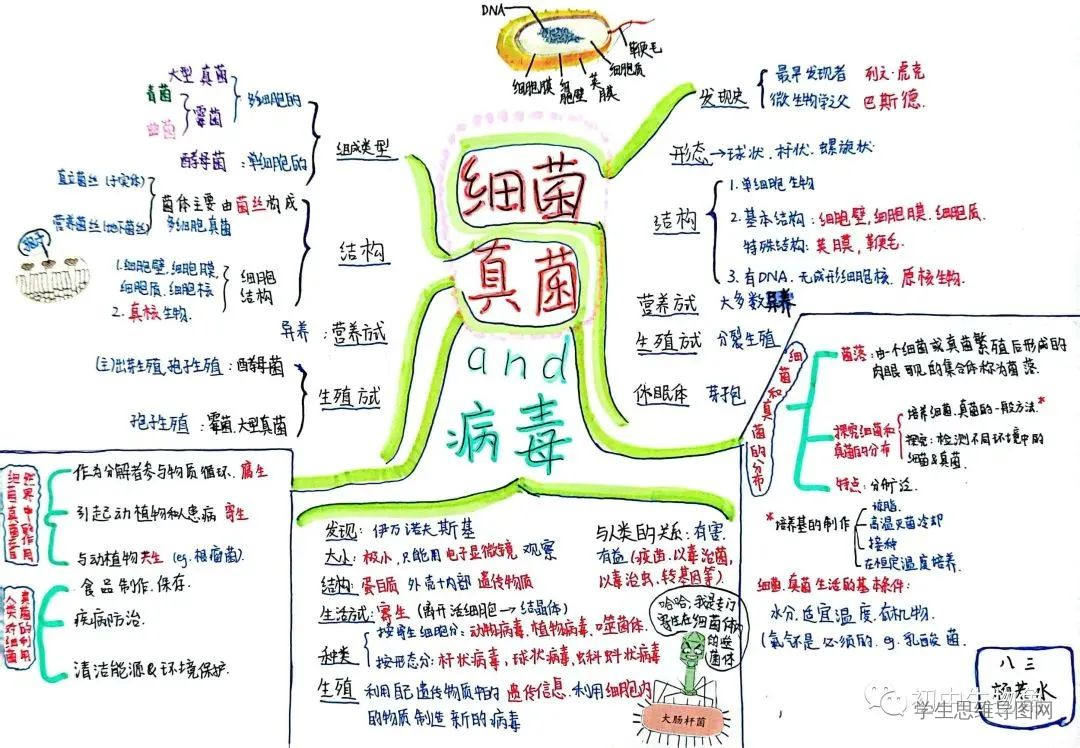 DNA
鞭毛
细胞质
细胞膜
细胞壁
荚膜
细菌
真菌
and
病毒
发现史
最早发现者 列文·虎克
微生物学父 巴斯德.
形态→球状.杆状.螺旋状
结构
1.单细胞生物
2.基本结构:细胞壁.细胞膜.细胞质.
特殊结构:荚膜,鞭毛.
3.有DNA.无成形细胞核. 原核生物.
营养方式 大多数异养
生殖方式 分裂生殖
休眠体 芽孢
组成类型
多细胞的
大型真菌
霉菌
青菌
曲菌
酵母菌:单细胞的
结构
菌体主要由菌丝构成
多细胞真菌
直立菌丝(子实体)
营养菌丝(地下菌丝)
孢子
细胞结构
1.细胞壁.细胞膜.
细胞质.细胞核
2.真核生物.
异养:营养方式
生殖方式
(主)出芽生殖,孢子生殖:酵母菌
孢子生殖:霉菌,大型真菌
细菌和真菌的分布
菌落:由一个细菌或真菌繁殖后形成的
肉眼可见的集合体称为菌落.
探究细菌和
真菌的分布
培养细菌.真菌的一般方法.*
探究:检测不同环境中的
细菌&真菌.
特点:分布广泛.
*培养基的制作
琼脂
高温灭菌冷却
接种
在恒定温度培养.
细菌,真菌生活的基本条件:
水分.适宜温度.有机物.
(氧气还是必须的.eg.乳酸菌.
细菌真菌在自然界中的作用
作为分解者参与物质循环.腐生
引起动植物和人患病 寄生
与动植物共生(eg.根瘤菌).
人类对细菌真菌的利用
食品制作.保存.
疾病防治.
清洁能源&环境保护.
发现: 伊万诺夫斯基
大小:极小,只能用电子显微镜 观察
结构:蛋白质 外壳+内部遗传物质
生活方式:寄生(离开活细胞→结晶体)
种类
按寄生细胞分:动物病毒,植物病毒,噬菌体.
按形态分:杆状病毒,球状病毒,蝌蚪状病毒
生殖 利用自己遗传物质中的遗传信息.利用细胞内
的物质制造新的病毒
与人类的关系:有害.
有益(疫苗,以毒治菌,
以毒治虫,转基因等)
哈哈,我是专门
寄生在细菌体内
的噬菌体
大肠杆菌
八三
学生思维导图网